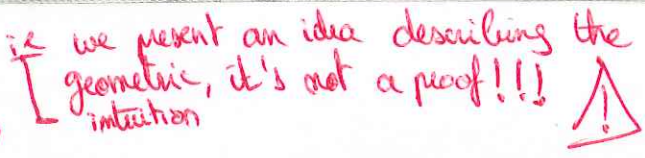 ie we present an idea describing the
geometric, it's not a proof!!!
intuition
!